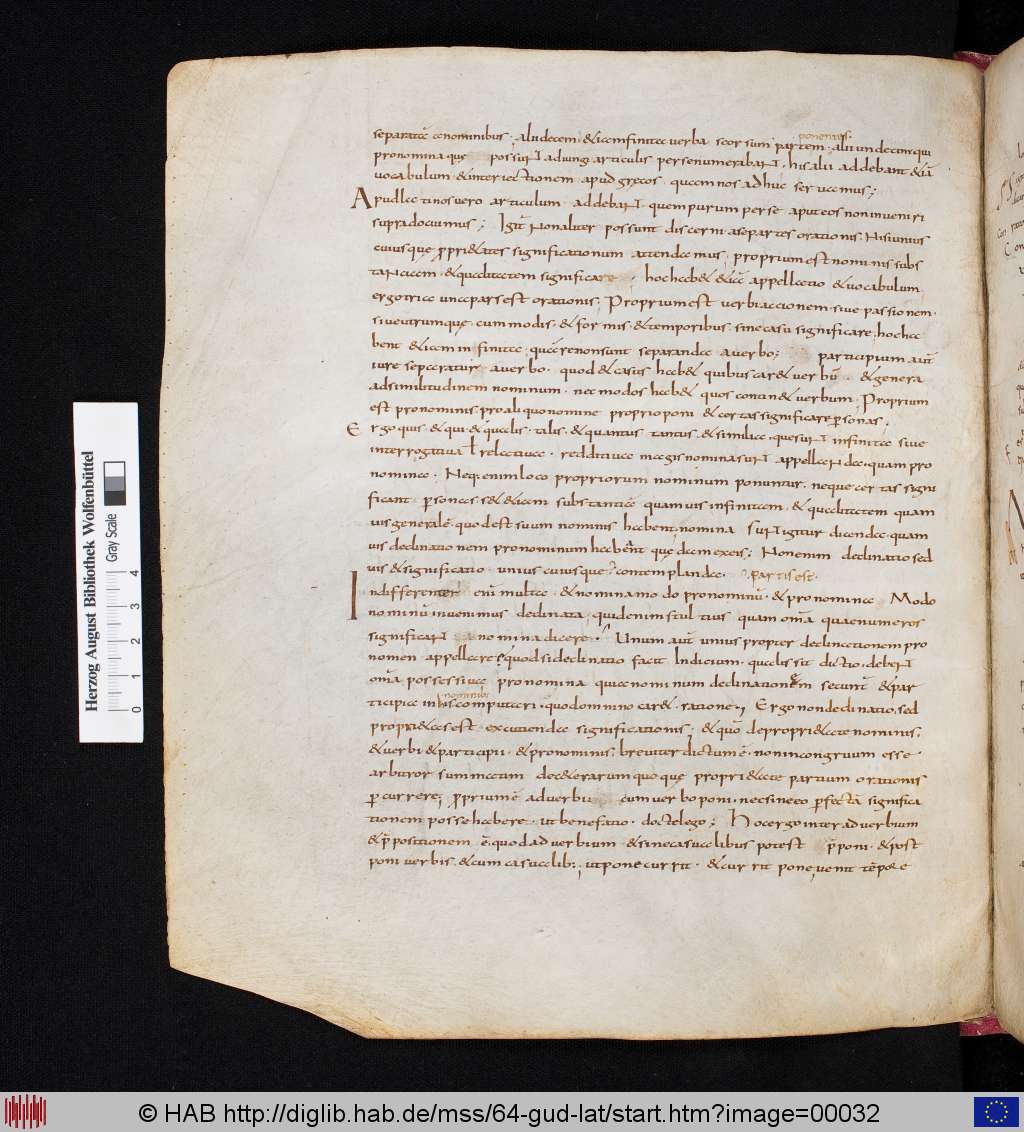 separatæ a nominibus; alii decem & iam infinita verba seorsum partem
ponentes;
alii undecim qui
pronomina que possunt adiungi articulis per se numerabant. his alii addebant & iā
vocabulum & interiectionem apud grecos. quam nos adhuc servamus;
Apud latinos vero articulum addebant quem purum per se aput eos non inveniri
supra docuimus; Igit̄ non aliter possunt discerni a se partes orationis. nisi unius
cuiusque proprietates significationum attendamus; proprium est nominis subs
tantiam & qualitatem significare; hoc habet & iā appellatio & vocabulum
ergo tria una pars est orationis; Proprium est verbi accionem sive passionem.
sive utrumque. cum modis. & formis. & temporibus sine casu significare, hoc ha
bent & iam infinita. quare non sunt separanda a verbo; participium aut̄
iure separatur a verbo. quod & casus habet quibus caret verbū. & genera
ad similitudinem nominum. nec modos habet quos continet verbum; Proprium
est pronominis pro aliquo nomine proprio poni & certas significare p̱ersonas;
Ergo quis. & qui. & qualis. talis. & quantus tantus. & similia. que sunt infinita sive
interrogativa ł relativa. vel redditiva magis nomina sunt appellanda. quam pro
nomina. Neq; enim loco propriorum nominum ponuntur. neque certas signi
ficant p̱ersonas sed & iam substantiā quamvis infinitam. & qualitatem quam
vis generalē. quod est suum nominis habent; nomina sunt igitur dicenda. quam
vis declinationem pronominum habeant quędam ex eis; Non enim declinatio sed
vis & significatio unius cuiusque
partis est.
contemplanda.
Indifferenter enī multa & nomina modo pronominū. & pronomina Modo
nominū invenimus declinata, quid enim stultius quam om̄a quae numeros
significant nomina dicere. Unum aut̄ unius propter declinationem pro
nomen appellare; quod si declinatio facit Indicium. qualis sit dictio. debent
om̄a possessiva pronomina quae nominum declinationem secunt̄ & par
ticipia in his
nominib;
computari. quod omnino caret ratione; Ergo non declinatio, sed
proprietas est. excutienda significationis; & quō de proprietate nominis.
& verbi & participii. & pronominis. breviter dictum ē. non incongruum esse
arbitror summatim de ceterarum quoque proprietate partium orationis
p̱ercurrere; p̱roprium ē adverbii cum verbo poni. nec sine eo p̱erfectā significa
tionem posse habere. ut bene fatio. docte lego; Hoc ergo inter adverbium
& p̄positionem ē. quod adverbium & sine casualibus potest p̄poni. & post
poni verbis. & cum casualib;; ut pone currit. & currit pone; venit tēpore
Herzog August Bibliothek Wolfenbüttel
Gray Scale
0 1 2 3 4
© HAB http://diglib.hab.de/mss/64-gud-lat/start.htm?image=00032